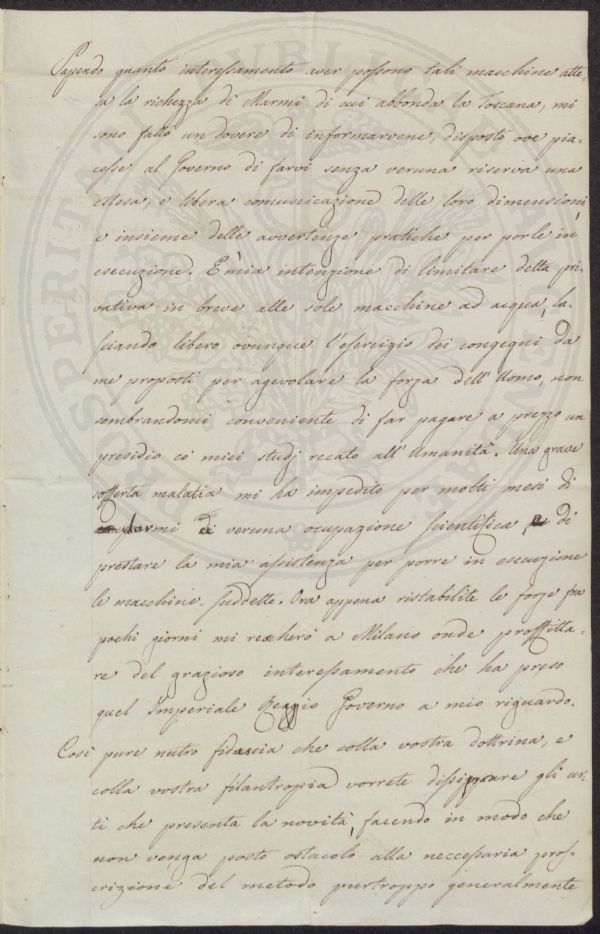 Sapendo quanto interessamento aver possono tali macchine atte-
sa le richezza di Marmi di cui abbonda la Toscana, mi
sono fatto un dovere di informarvene, disposto ove pia-
cesse al Governo di farvi senza veruna riserva una
estesa, e libera comunicazione delle loro dimensioni
e insieme delle avvertenze pratiche per porle in
esecuzione. È mia intenzione di limitare detta pri-
vativa in breve alle sole macchine ad acqua, la-
sciando libero ovunque l'esercizio dei congegni da
me proposti per agevolare la forza dell'Uomo, non
sembrandomi conveniente di far pagare a prezzo un
presidio co' miei studj recato all'Umanità. Una grave
sofferta malatia mi ha impedito per molti mesi di
darmi di veruna ocupazione scientifica, e di
prestare la mia assistenza per porre in esecuzione
le macchine suddette. Ora appena ristabilite le forze fra
pochi giorni mi recherò a Milano onde proffitta-
re del grazioso interessamento che ha preso
quel Imperiale Reggio Governo a mio riguardo.
Così pure nutro fiducia che colla vostra dottrina, e
colla vostra filantropia vorrete dissipare gli ur-
ti che presenta la novità, facendo in modo che
non venga posto ostacolo alla neccessaria pros-
crizione del metodo purtroppo generalmente